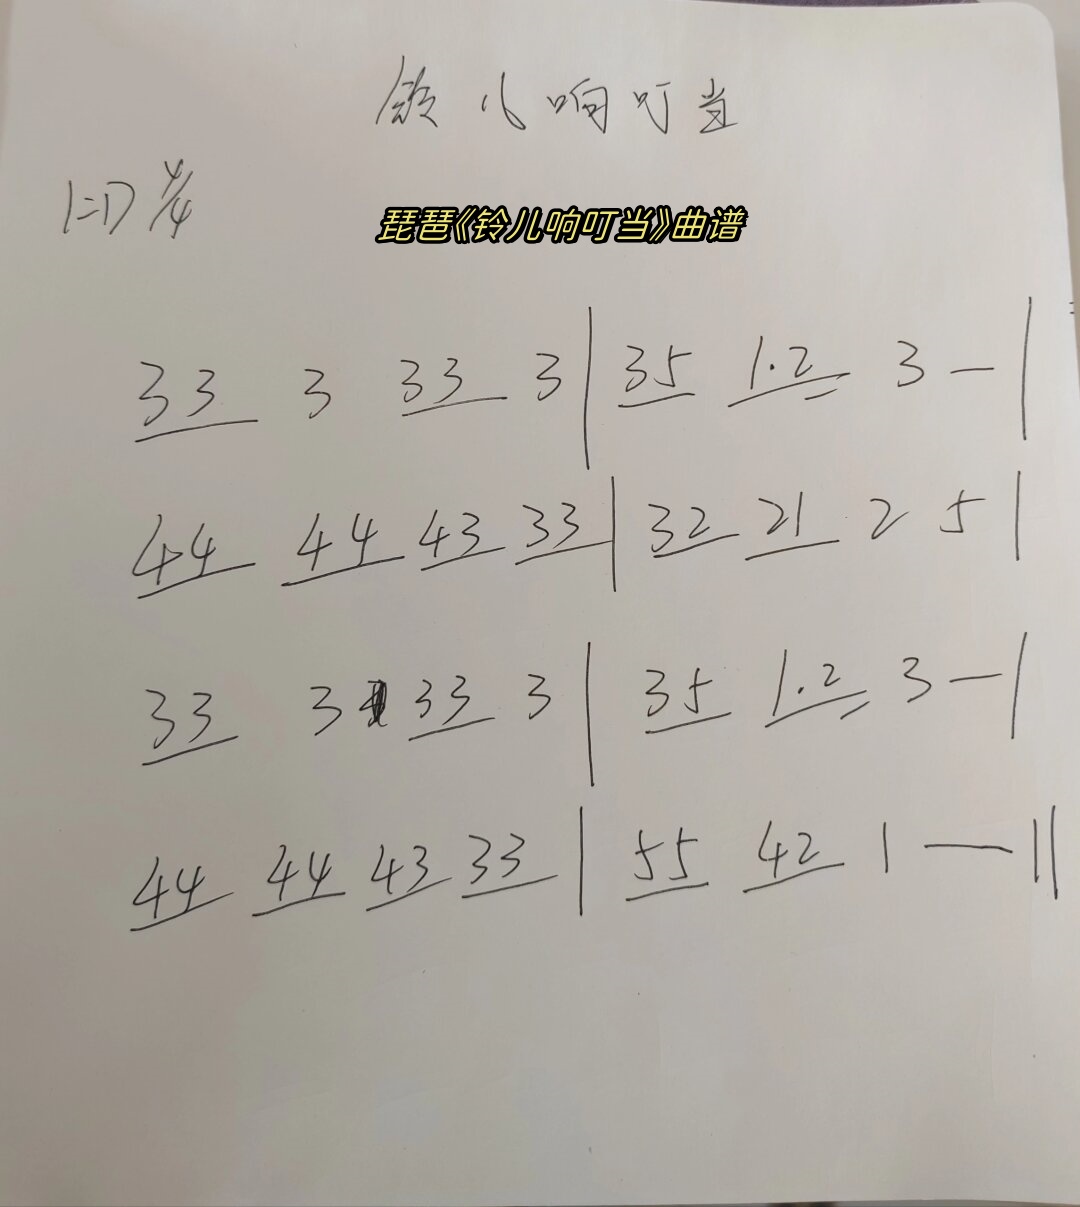 铃儿响叮当
1=D 4/4
琵琶《铃儿响叮当》曲谱
33 3 33 3 | 35 1.2 3 — |
44 44 43 33 | 32 21 2 5 |
33 3 33 3 | 35 1.2 3 — |
44 44 43 33 | 55 42 1 — ||